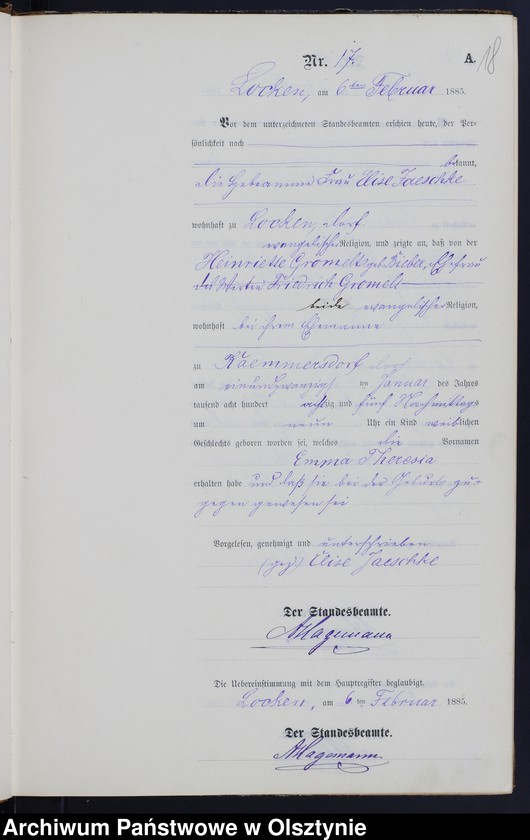 18
Nr. 17. A.
Locken, am 6ten Februar 1885.
Vor dem unterzeichneten Standesbeamten erschien heute, der Per-
sönlichkeit nach
bekannt,
die Hebeamme Frau Elise Jaeschke
wohnhaft zu Locken, Dorf
evangelischer Religion, und zeigte an, daß von der
Heinriette Gromelt geb. Bieber, Ehefrau
des Wirten Friedrich Gromelt
beide evangelischer Religion,
wohnhaft bei ihrem Ehemanne
zu Kaemmersdorf Dorf
am einundzwanzigs ten Januar des Jahres
tausend acht hundert achtzig und fünf Nachmittags
um neun Uhr ein Kind weiblichen
Geschlechts geboren worden sei, welches die Vornamen
Emma Theresia
erhalten habe und daß sie bei der Geburt zu-
gegen gewesen sei
Vorgelesen, genehmigt und unterschrieben
(gez.) Elise Jaeschke
Der Standesbeamte.
AHagemann
Die Uebereinstimmung mit dem Hauptregister beglaubigt.
Locken, am 6 ten Februar 1885.
Der Standesbeamte.
AHagemann
Archiwum Państwowe w Olsztynie